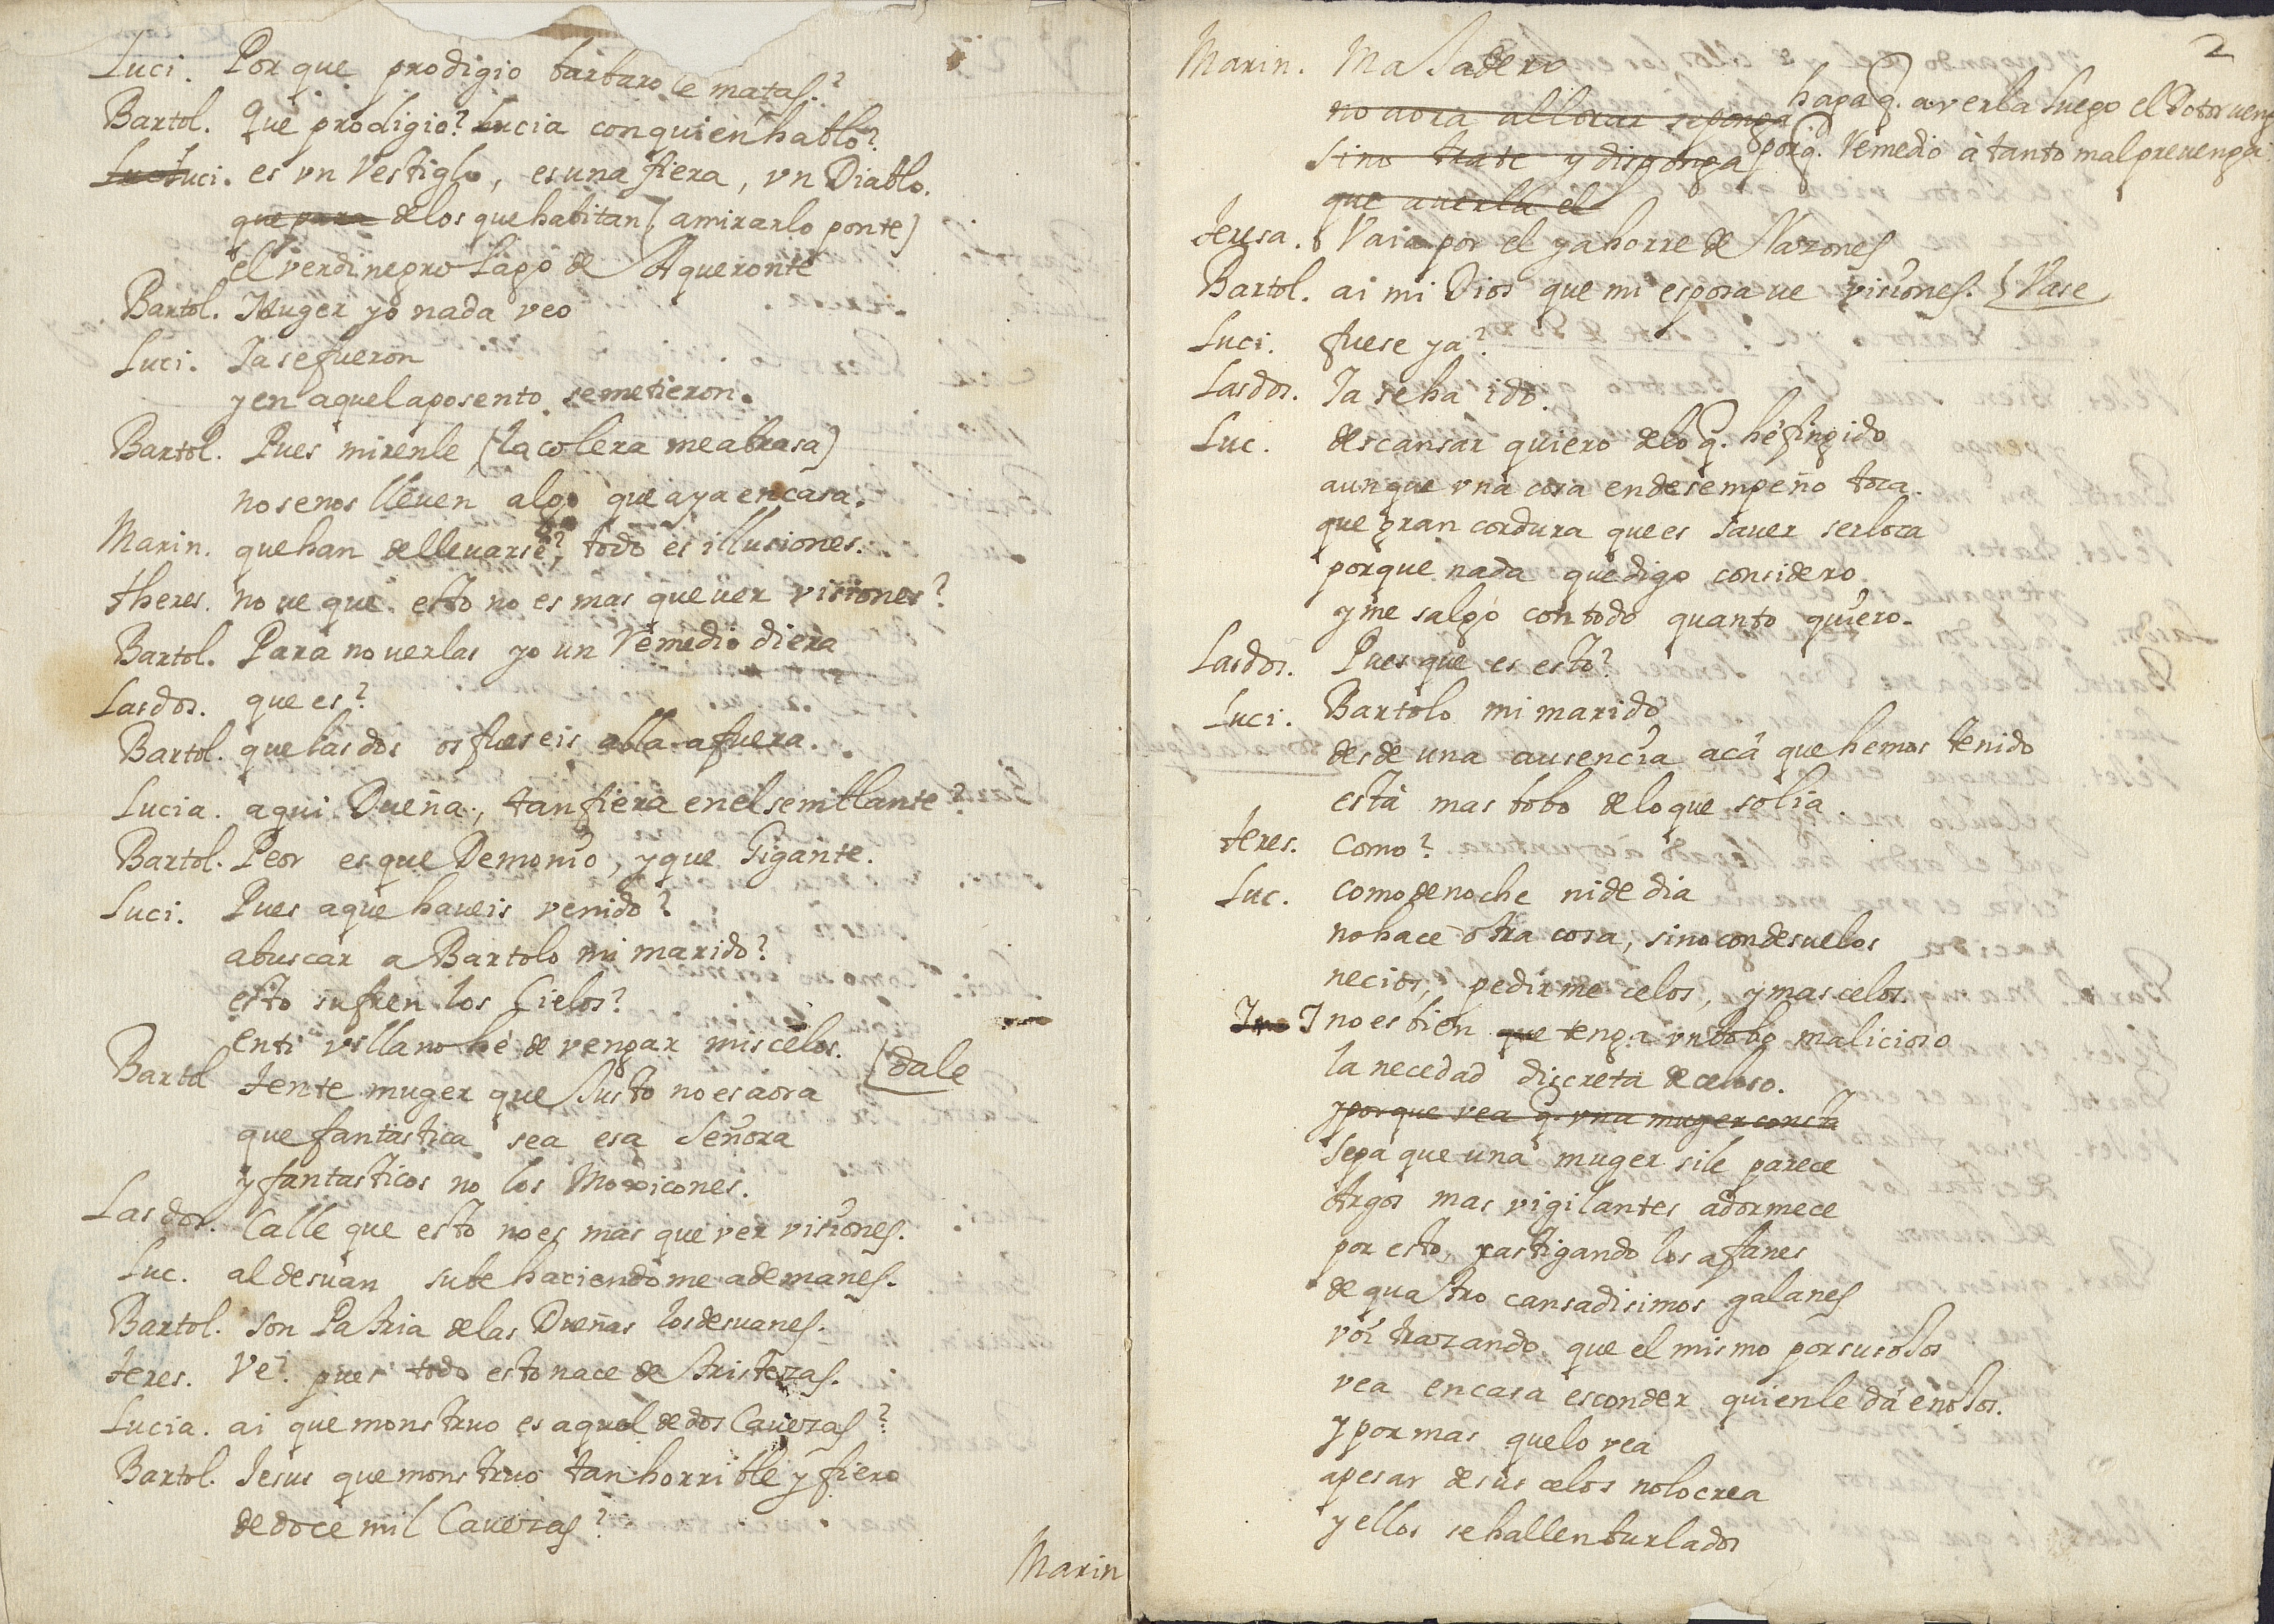 Luci. Por que prodigio barbaro le matas?
Bartol. Que prodigio? Lucia con quien hablo?
Luci. es vn Vestiglo, es una fiera, vn Diablo.
que para de los que habitan (a mirarlo ponte)
el verdinegro Lago de Aqueronte
Bartol. Muger yo nada veo
Luci. Ia se fueron
y en aquel aposento se metieron.
Bartol. Pues mirenle (la colera me abrasa)
no se nos lleuen algo que aya en casa.
Marin. que han de lleuarse? todo es illusiones.
theres. no ve que esto no es mas que uer visiones?
Bartol. Para no uerlas yo un Remedio diera
Las dos. que es?
Bartol. que las dos os fueseis alla afuera.
Lucia. aqui Dueña, tan fiera en el semblante?
Bartol. Peor es que Demonio, y que Gigante.
Luci. Pues a que haueis venido?
a buscar a Bartolo mi marido?
esto sufren los Cielos?
en ti villano hè de vengar mis celos. (dale
Bartol Tente muger que Justo no es aora
que fantastica sea esa Señora
y fantasticos no los Moxicones.
Las dos. Calle que esto no es mas que ver visiones.
Luc. al desuan sube haciendome ademanes.
Bartol. son Patria de las Dueñas los desuanes.
teres. Ve? pues todo esto nace de tristezas.
Lucia. ai que monstruo es aquel de dos Cauezas?
Bartol. Iesus que monstruo tan horrible y fiero
de doce mil Cauezas?
Marin
2
Marin. Majadero
no aora a llorar se ponga haga q. a verla luego el Dotor venga
sino trate y disponga porq. Remedio à tanto mal preuenga
que a uerla el
teresa. Vaia por el y ahorre de Razones
Bartol. ai mi Dios que mi esposa ve visiones. (Vase
Luci. fuese ya?
Las dos. Ia se ha ido.
Luc. descansar quiero de lo q. hè fingido
aunque vna cosa en desempeño toca.
que gran cordura que es sauer ser loca
porque nada que digo considero
y me salgo con todo quanto quiero.
Las dos. Pues que es esto?
Luci. Bartolo mi marido
desde una ausencia acà que hemos tenido
està mas bobo de lo que solia.
teres. Como?
Luc. como de noche ni de dia
no hace otra cosa, sino con desuelos
necios, pedirme celos, y mas celos.
I no es bien que tenga vn bobo malicioso
la necedad discreta de celoso.
y porque vea q. vna muger
Sepa que una muger si le parece
Argos mas vigilantes adormece
por esto, castigando los afanes
de quatro cansadisimos galanes
voi trazando que el mismo por sus ojos
vea en casa esconder quien le dà enojos.
y por mas que lo vea
a pesar de sus celos no lo crea
y ellos se hallen burlados